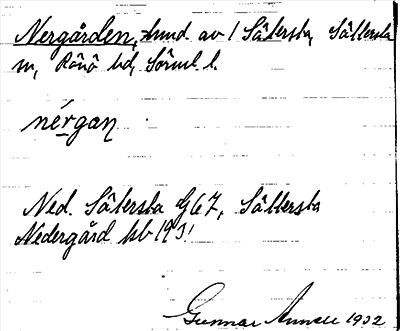 Nergården, hmd av 1 Sätersta, Sättersta
sn, Rönö hd, Sörml. l.
nérgan
Ned. Sätersta G67, Sättersta
Nedergård hb 1931
Gunnar 1932